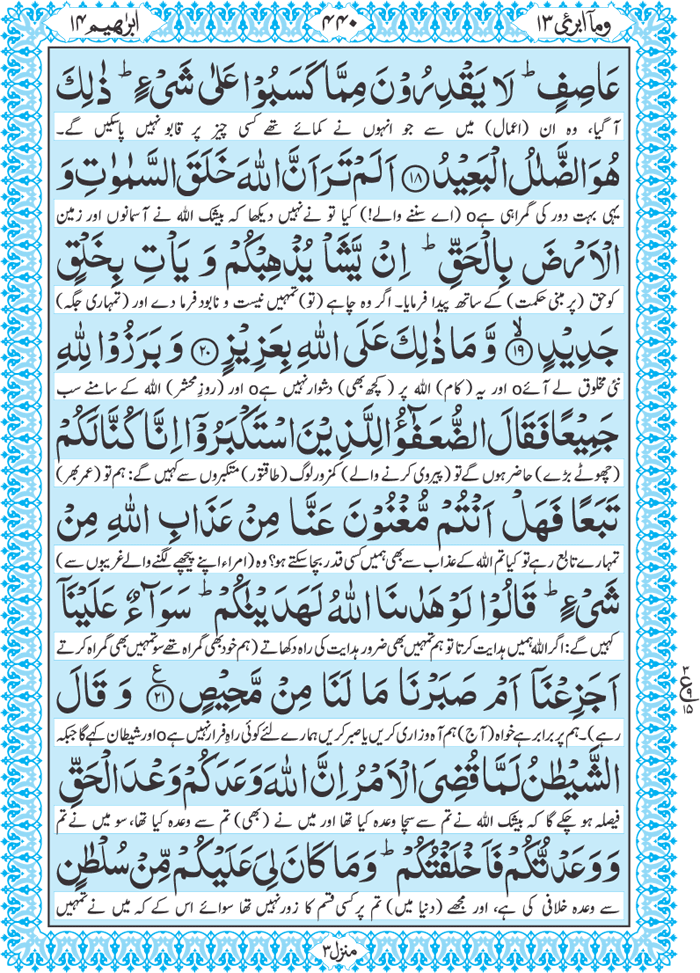 وما ابرئ ١٣
٤٤٠
ابرٰهيم ١٤
عَاصِفٍ ؕ لَا يَقْدِرُوْنَ مِمَّا كَسَبُوْا عَلٰى شَیْءٍ ؕ ذٰلِكَ
آ گیا، وہ ان (اعمال) میں سے جو انہوں نے کمائے تھے کسی چیز پر قابو نہیں پاسکیں گے۔
هُوَ الضَّلٰلُ الْبَعِيْدُ ﴿۱۸﴾ اَلَمْ تَرَ اَنَّ اللّٰهَ خَلَقَ السَّمٰوٰتِ وَ
یہی بہت دور کی گمراہی ہےo (اے سننے والے!) کیا تو نے نہیں دیکھا کہ بیشک اللہ نے آسمانوں اور زمین
الْاَرْضَ بِالْحَقِّ ؕ اِنْ يَّشَاْ يُذْهِبْكُمْ وَ يَاْتِ بِخَلْقٍ
کو حق (پر مبنی حکمت) کے ساتھ پیدا فرمایا۔ اگر وہ چاہے (تو) تمہیں نیست و نابود فرما دے اور (تمہاری جگہ)
جَدِيْدٍ ﴿ۙ۱۹﴾ وَّ مَا ذٰلِكَ عَلَى اللّٰهِ بِعَزِيْزٍ ﴿۲۰﴾ وَ بَرَزُوْا لِلّٰهِ
نئی مخلوق لے آئےo اور یہ (کام) اللہ پر (کچھ بھی) دشوار نہیں ہےo اور (روزِ محشر) اللہ کے سامنے سب
جَمِيْعًا فَقَالَ الضُّعَفٰٓؤُا لِلَّذِيْنَ اسْتَكْبَرُوْۤا اِنَّا كُنَّا لَكُمْ
(چھوٹے بڑے) حاضر ہوں گے تو (پیروی کرنے والے) کمزور لوگ (طاقتور) متکبروں سے کہیں گے: ہم تو (عمر بھر)
تَبَعًا فَهَلْ اَنْتُمْ مُّغْنُوْنَ عَنَّا مِنْ عَذَابِ اللّٰهِ مِنْ
تمہارے تابع رہے تو کیا تم اللہ کے عذاب سے بھی ہمیں کسی قدر بچا سکتے ہو؟ وہ (امراء اپنے پیچھے لگنے والے غریبوں سے)
شَیْءٍ ؕ قَالُوْا لَوْ هَدٰىنَا اللّٰهُ لَهَدَيْنٰكُمْ ؕ سَوَآءٌ عَلَيْنَاۤ
کہیں گے: اگر اللہ ہمیں ہدایت کرتا تو ہم تمہیں بھی ضرور ہدایت کی راہ دکھاتے (ہم خود بھی گمراہ تھے سو تمہیں بھی گمراہ کرتے
اَجَزِعْنَاۤ اَمْ صَبَرْنَا مَا لَنَا مِنْ مَّحِيْصٍ ﴿۲۱﴾ ع وَ قَالَ
ع ۹ ۱۵
رہے)۔ ہم پر برابر ہے خواہ (آج) ہم آہ و زاری کریں یا صبر کریں ہمارے لئے کوئی راہِ فرار نہیں ہےo اور شیطان کہے گا جبکہ
الشَّيْطٰنُ لَمَّا قُضِیَ الْاَمْرُ اِنَّ اللّٰهَ وَعَدَكُمْ وَعْدَ الْحَقِّ
فیصلہ ہو چکے گا کہ بیشک اللہ نے تم سے سچا وعدہ کیا تھا اور میں نے (بھی) تم سے وعدہ کیا تھا، سو میں نے تم
وَ وَعَدْتُّكُمْ فَاَخْلَفْتُكُمْ ؕ وَ مَا كَانَ لِیَ عَلَيْكُمْ مِّنْ سُلْطٰنٍ
سے وعدہ خلافی کی ہے، اور مجھے (دنیا میں) تم پر کسی قسم کا زور نہیں تھا سوائے اس کے کہ میں نے تمہیں
منزل ۳